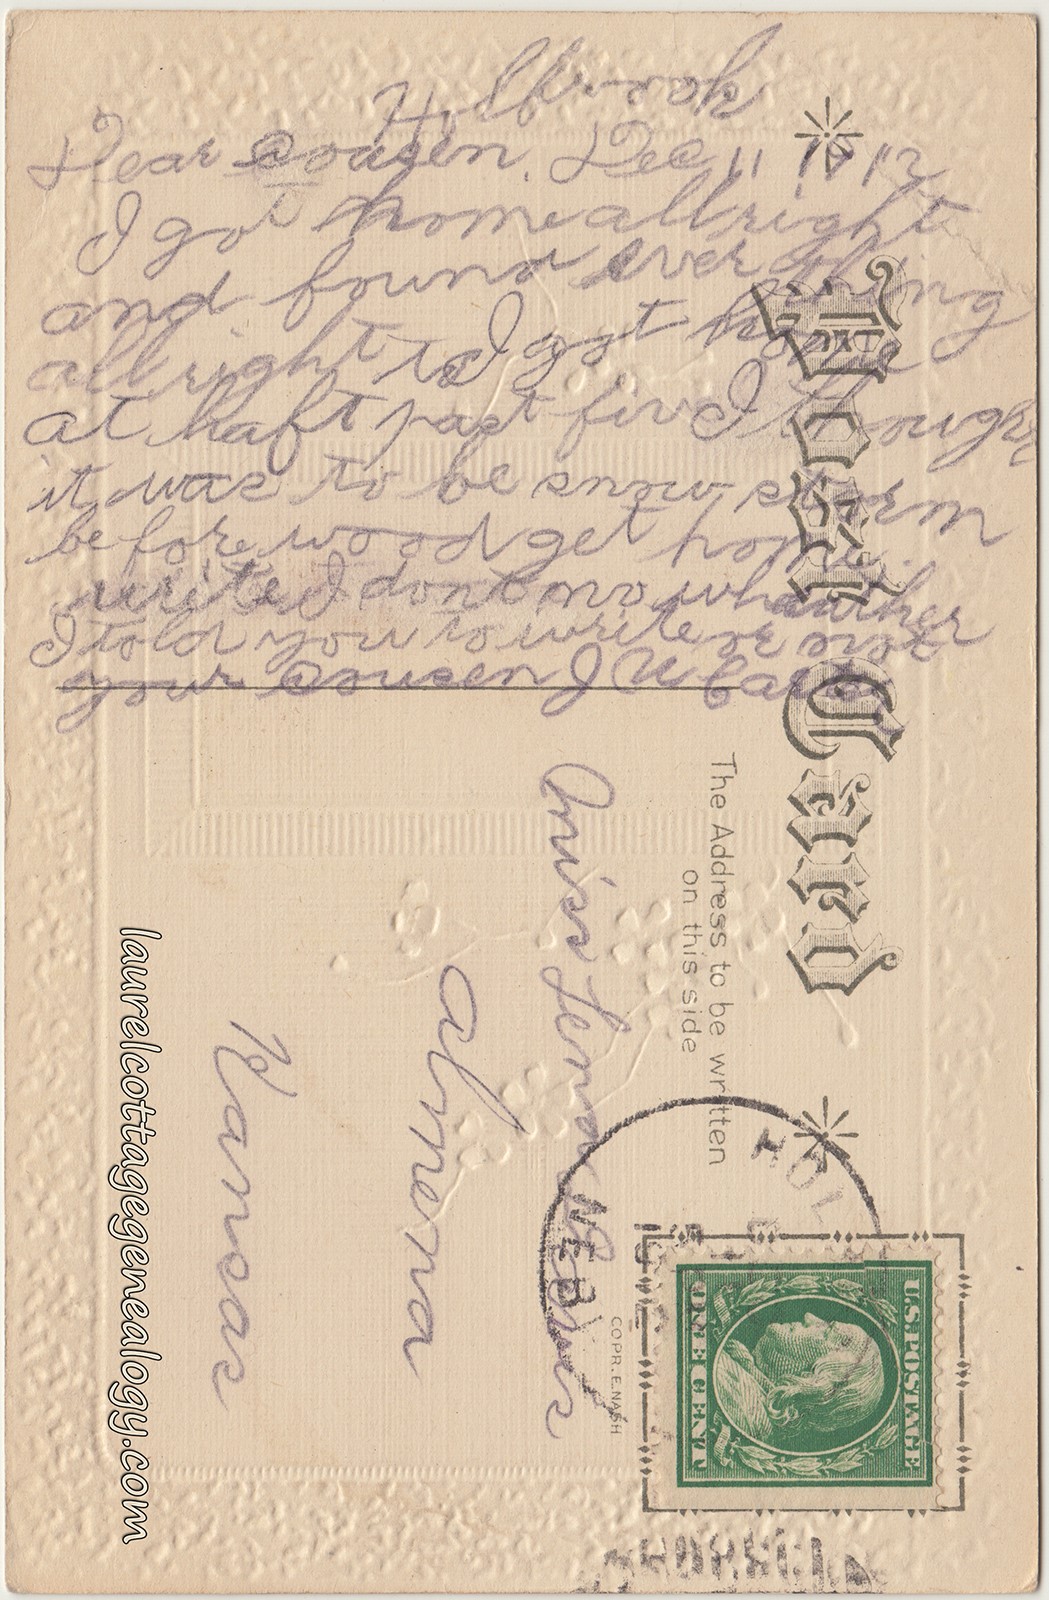 Dear Cousen. Dec 11 1912
I got home allright
and found ever thing
allright to I got home
at haft past five I though
it was to be snow storm
before wood get home
write I dont no whather
I told you to write or not
your Cousen J W
Post Card
The Address to be written
on this side
Miss Lena
Almena
Kansas
HOL
NEB
U.S. POSTAGE
ONE CENT
COPR. E. NASH
laurelcottagegenealogy.com